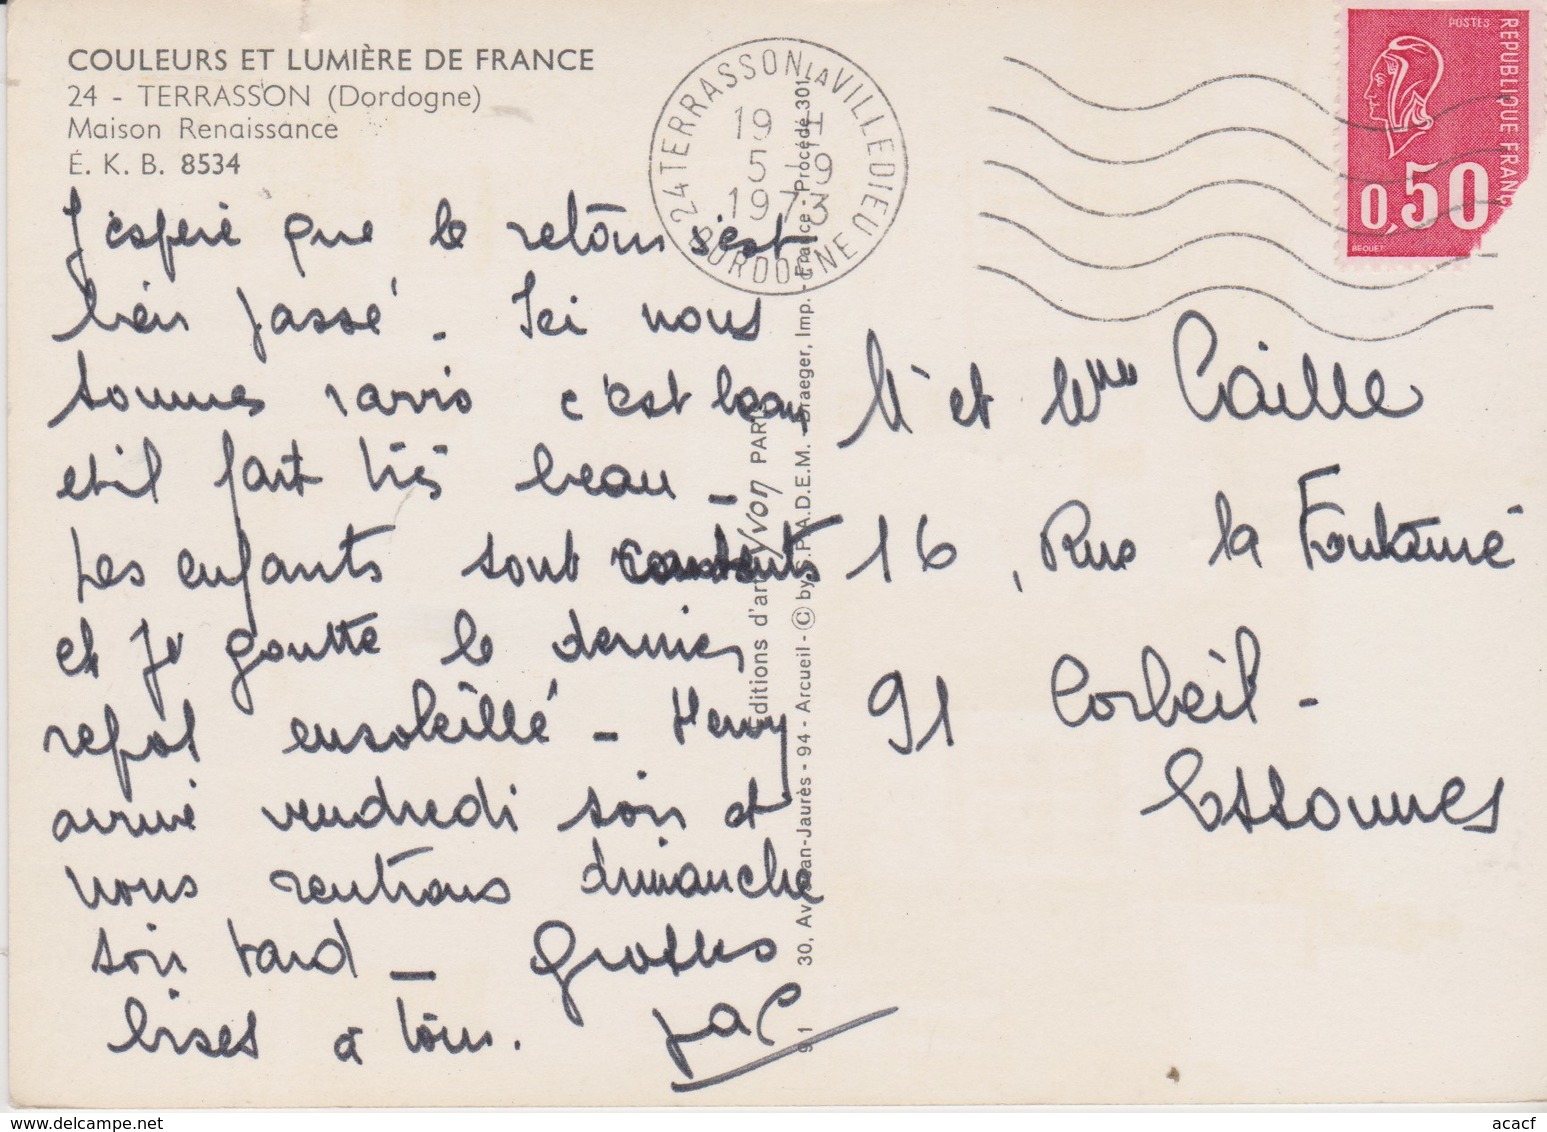 COULEURS ET LUMIÈRE DE FRANCE
24 - TERRASSON (Dordogne)
Maison Renaissance
É. K. B. 8534
J'espère que le retour s'est
bien passé. Ici nous
sommes ravis c'est beau
et il fait très beau -
Les enfants sont contents
et je goutte le dernier
repos ensoleillé - Hervy
arrive vendredi soir et
nous rentrons dimanche
soir tard - Grosses
bises à tous.
24 TERRASSON LA VILLEDIEU
19 H
5 - 9
1973
DORDOGNE
POSTES
REPUBLIQUE FRANC
0,50
BEQUET
Editions d'art Yvon PARIS
30, Av. Jean-Jaurès - 94 - Arcueil - © by S.P.A.D.E.M. - Draeger, Imp. - France - Procédé 301
Mr et Mme Caille
16, Rue la Fontaine
91 Corbeil -
Essonnes
acacf